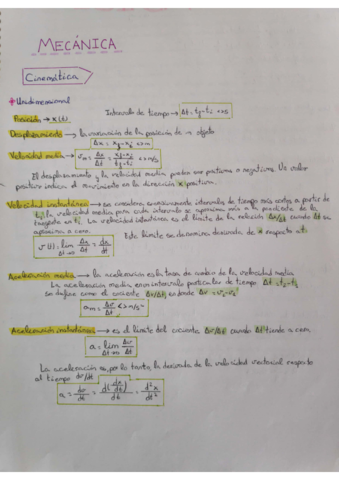 MECÁNICA
Cinemática
+ Unidimensional
Posición → x(t)
Intervalo de tiempo → Δt = tf - ti <->s
Desplazamiento → la variación de la posición de un objeto
Δx = xf - xi <->m
Velocidad media → vm = Δx/Δt = xf - xi/tf - ti <->m/s
El desplazamiento y la velocidad media pueden ser positivos o negativos. Un valor
positivo indica el movimiento en la dirección x positiva.
Velocidad instantánea → se considera sucesivamente intervalos de tiempo más cortos a partir de
ti, la velocidad media para cada intervalo se aproxima más a la pendiente de la
tangente en ti. La velocidad instantánea es el límite de la relación Δx/Δt cuando Δt se
aproxima a cero.
Este límite se denomina derivada de x respecto a t:
v(t) = lim Δt→0 Δx/Δt = dx/dt
Aceleración media → la aceleración es la tasa de cambio de la velocidad media
La aceleración media en un intervalo particular de tiempo Δt = t2 - t1
se define como el cociente Δv/Δt, en donde Δv = v2 - v1
am = Δv/Δt <->m/s²
Aceleración instantánea → es el límite del cociente Δv/Δt cuando Δt tiende a cero.
a = lim Δt→0 Δv/Δt
La aceleración es, por lo tanto, la derivada de la velocidad respecto
al tiempo dv/dt
a = dv/dt = d(dx/dt)/dt = d²x/dt²